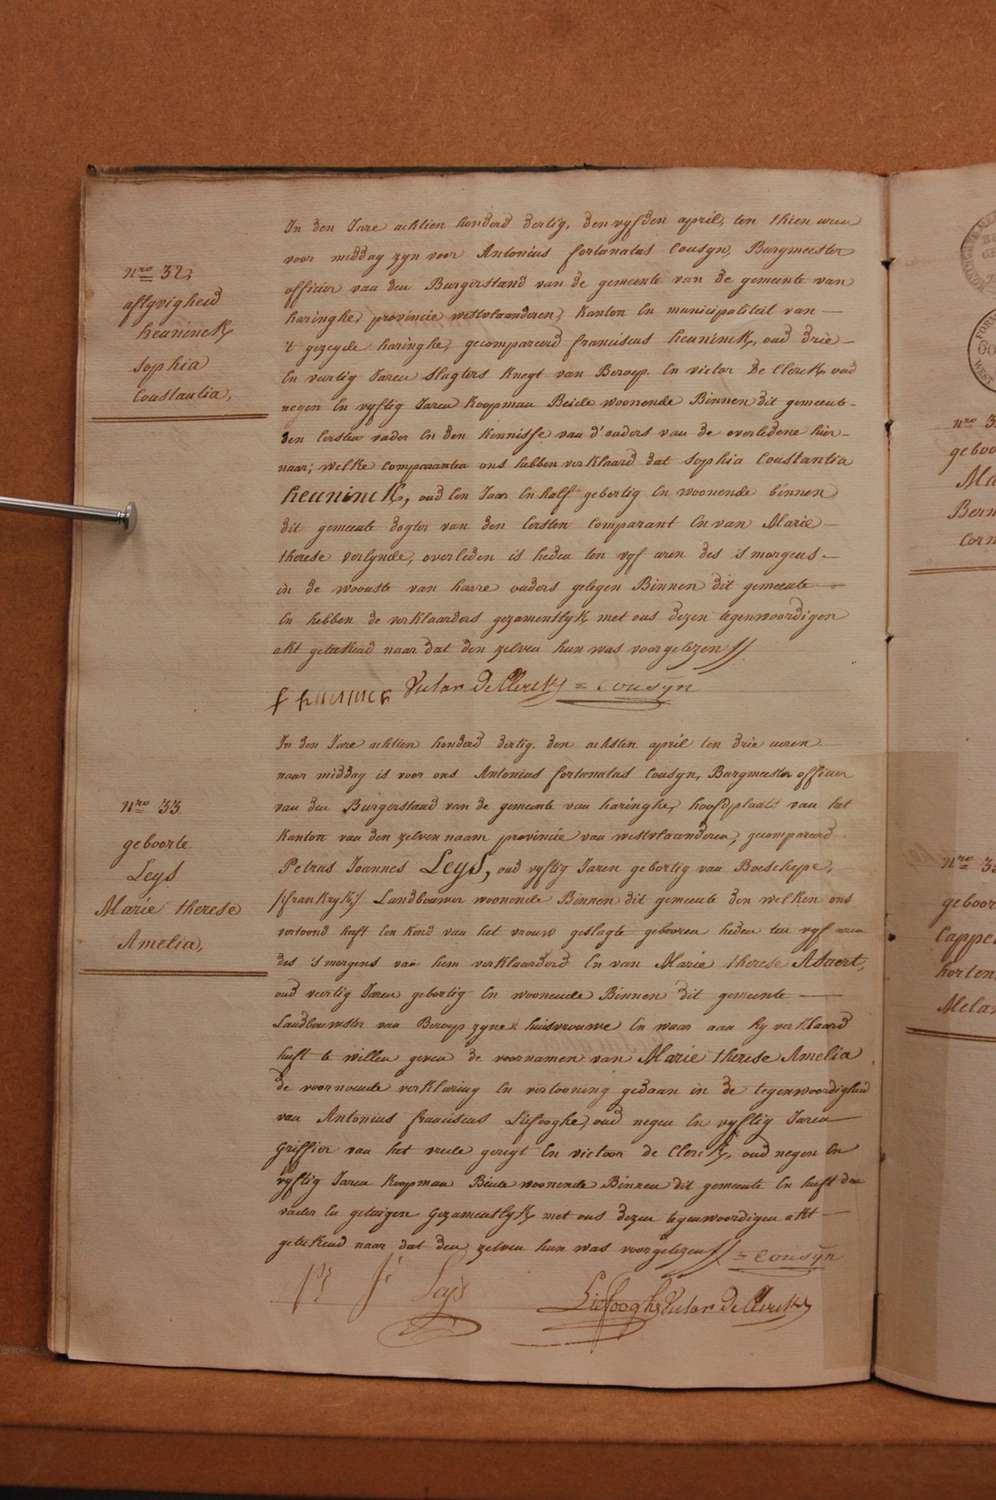 nro 32,
aflyvigheid
heuninck
Sophia
Constantia,
In den Jare achtien honderd dertig, den vyfden april, ten thien uren
voor middag zyn voor Antonius fortunatus Cousyn, Burgmeester
officier van den Burgerstand van de gemeente van de gemeente van
haringhe, provincie westvlaanderen, Kanton En municipaliteit van —
't gezeyde haringhe, gecompareerd franciscus heuninck, oud drie —
En veertig Jaren slagters knegt van Beroep. En victor De Clerck oud
negen En vyftig Jaren koopman Beide woonende Binnen dit gemeente -
den Eersten vader En den kennisse van d'ouders van de overledene hier -
naar; welke comparanten ons hebben verklaard dat Sophia Constantia
heuninck, oud Een Jaar En half gebortig En woonende binnen
dit gemeente dogter van den Eersten Comparant En van Marie —
therese verlynde, overleden is heden ten vyf uren des 's morgens -
in de woonste van haere ouders gelegen Binnen dit gemeente —
En hebben de verklaarders gezamentlyk met ons dezen tegenwoordigen
akt geteekend naar dat den zelven hun was voorgelezen //
f heuninck Victor De Clerck = Cousyn
nro 33
geboorte
Leys
Marie therese
Amelia,
In den Jare achtien honderd dertig den achsten april ten drie uren
naar middag is voor ons Antonius fortunatus Cousyn, Burgmeester officier
van den Burgerstand van de gemeente van haringhe, hoofdplaats van het
Kanton van den zelven naam provincie van westvlaanderen, gecompareerd
Petrus Joannes Leys, oud vyftig Jaren gebortig van Boeschepe,
/frankryk/ Landbouwer woonende Binnen dit gemeente den welken ons
vertoond heeft Een kind van het vrouw geslagte geboren heden ten vyf uren
des 's morgens van hem verklaarderd En van Marie therese Asaert,
oud veertig Jaren gebortig En woonende Binnen dit gemeente —
Landbouwster van Beroep zyne huisvrouwe En waar aan hy verklaard
heeft te willen geven de voornamen van Marie therese Amelia
de voornoemde verklaring En vertooning gedaan in de tegenwoordigheid
van Antonius franciscus Liefooghe, oud negen En vyftig Jaren —
Griffier van het vrede geregt En victoor de Clerck, oud negen En
vyftig Jaren koopman Beide woonende Binnen dit gemeente En heeft den
vader En getuigen gezamentlyk met ons dezen tegenwoordigen akt —
geteekend naar dat den zelven hun was voorgelezen // = Cousyn
Leys Liefooghe Victor De Clerck
nro 3
geboor
Ma
Bern
Corn
nro 3
geboor
Cappe
horten
Melan